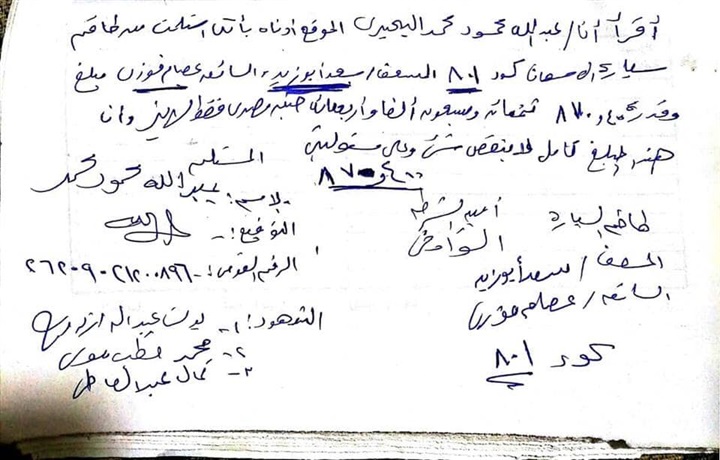 أقر أنا / عبدالله محمود محمد البحيرى الموقع أدناه بأننى استلمت من طاقم
سيارة الاسعاف كود ٨٠١ المسعف / سعد أبوزيد، السائق عصام فوزى مبلغ
وقدره ٨٧٠٤٠٠ ثمنمائة وسبعون ألفا وأربعمائة جنيه مصرى فقط لاغير وأن
هذا المبلغ كامل لا ينقص شئ وعلى مسئوليتى
٨٧٠٤٠٠
المستلم
الاسم: عبدالله محمود محمد
التوقيع:-
الرقم القومى:- ٢٦٢٠٩٠٢١٢٠٠٨٩٦
أمين الشرطة
طاقم السيارة
المسعف / سعد أبوزيد
السائق / عصام فوزى
كود ٨٠١
الشهود: ١-
٢- محمد قطب
٣- كمال عبدالعاطى